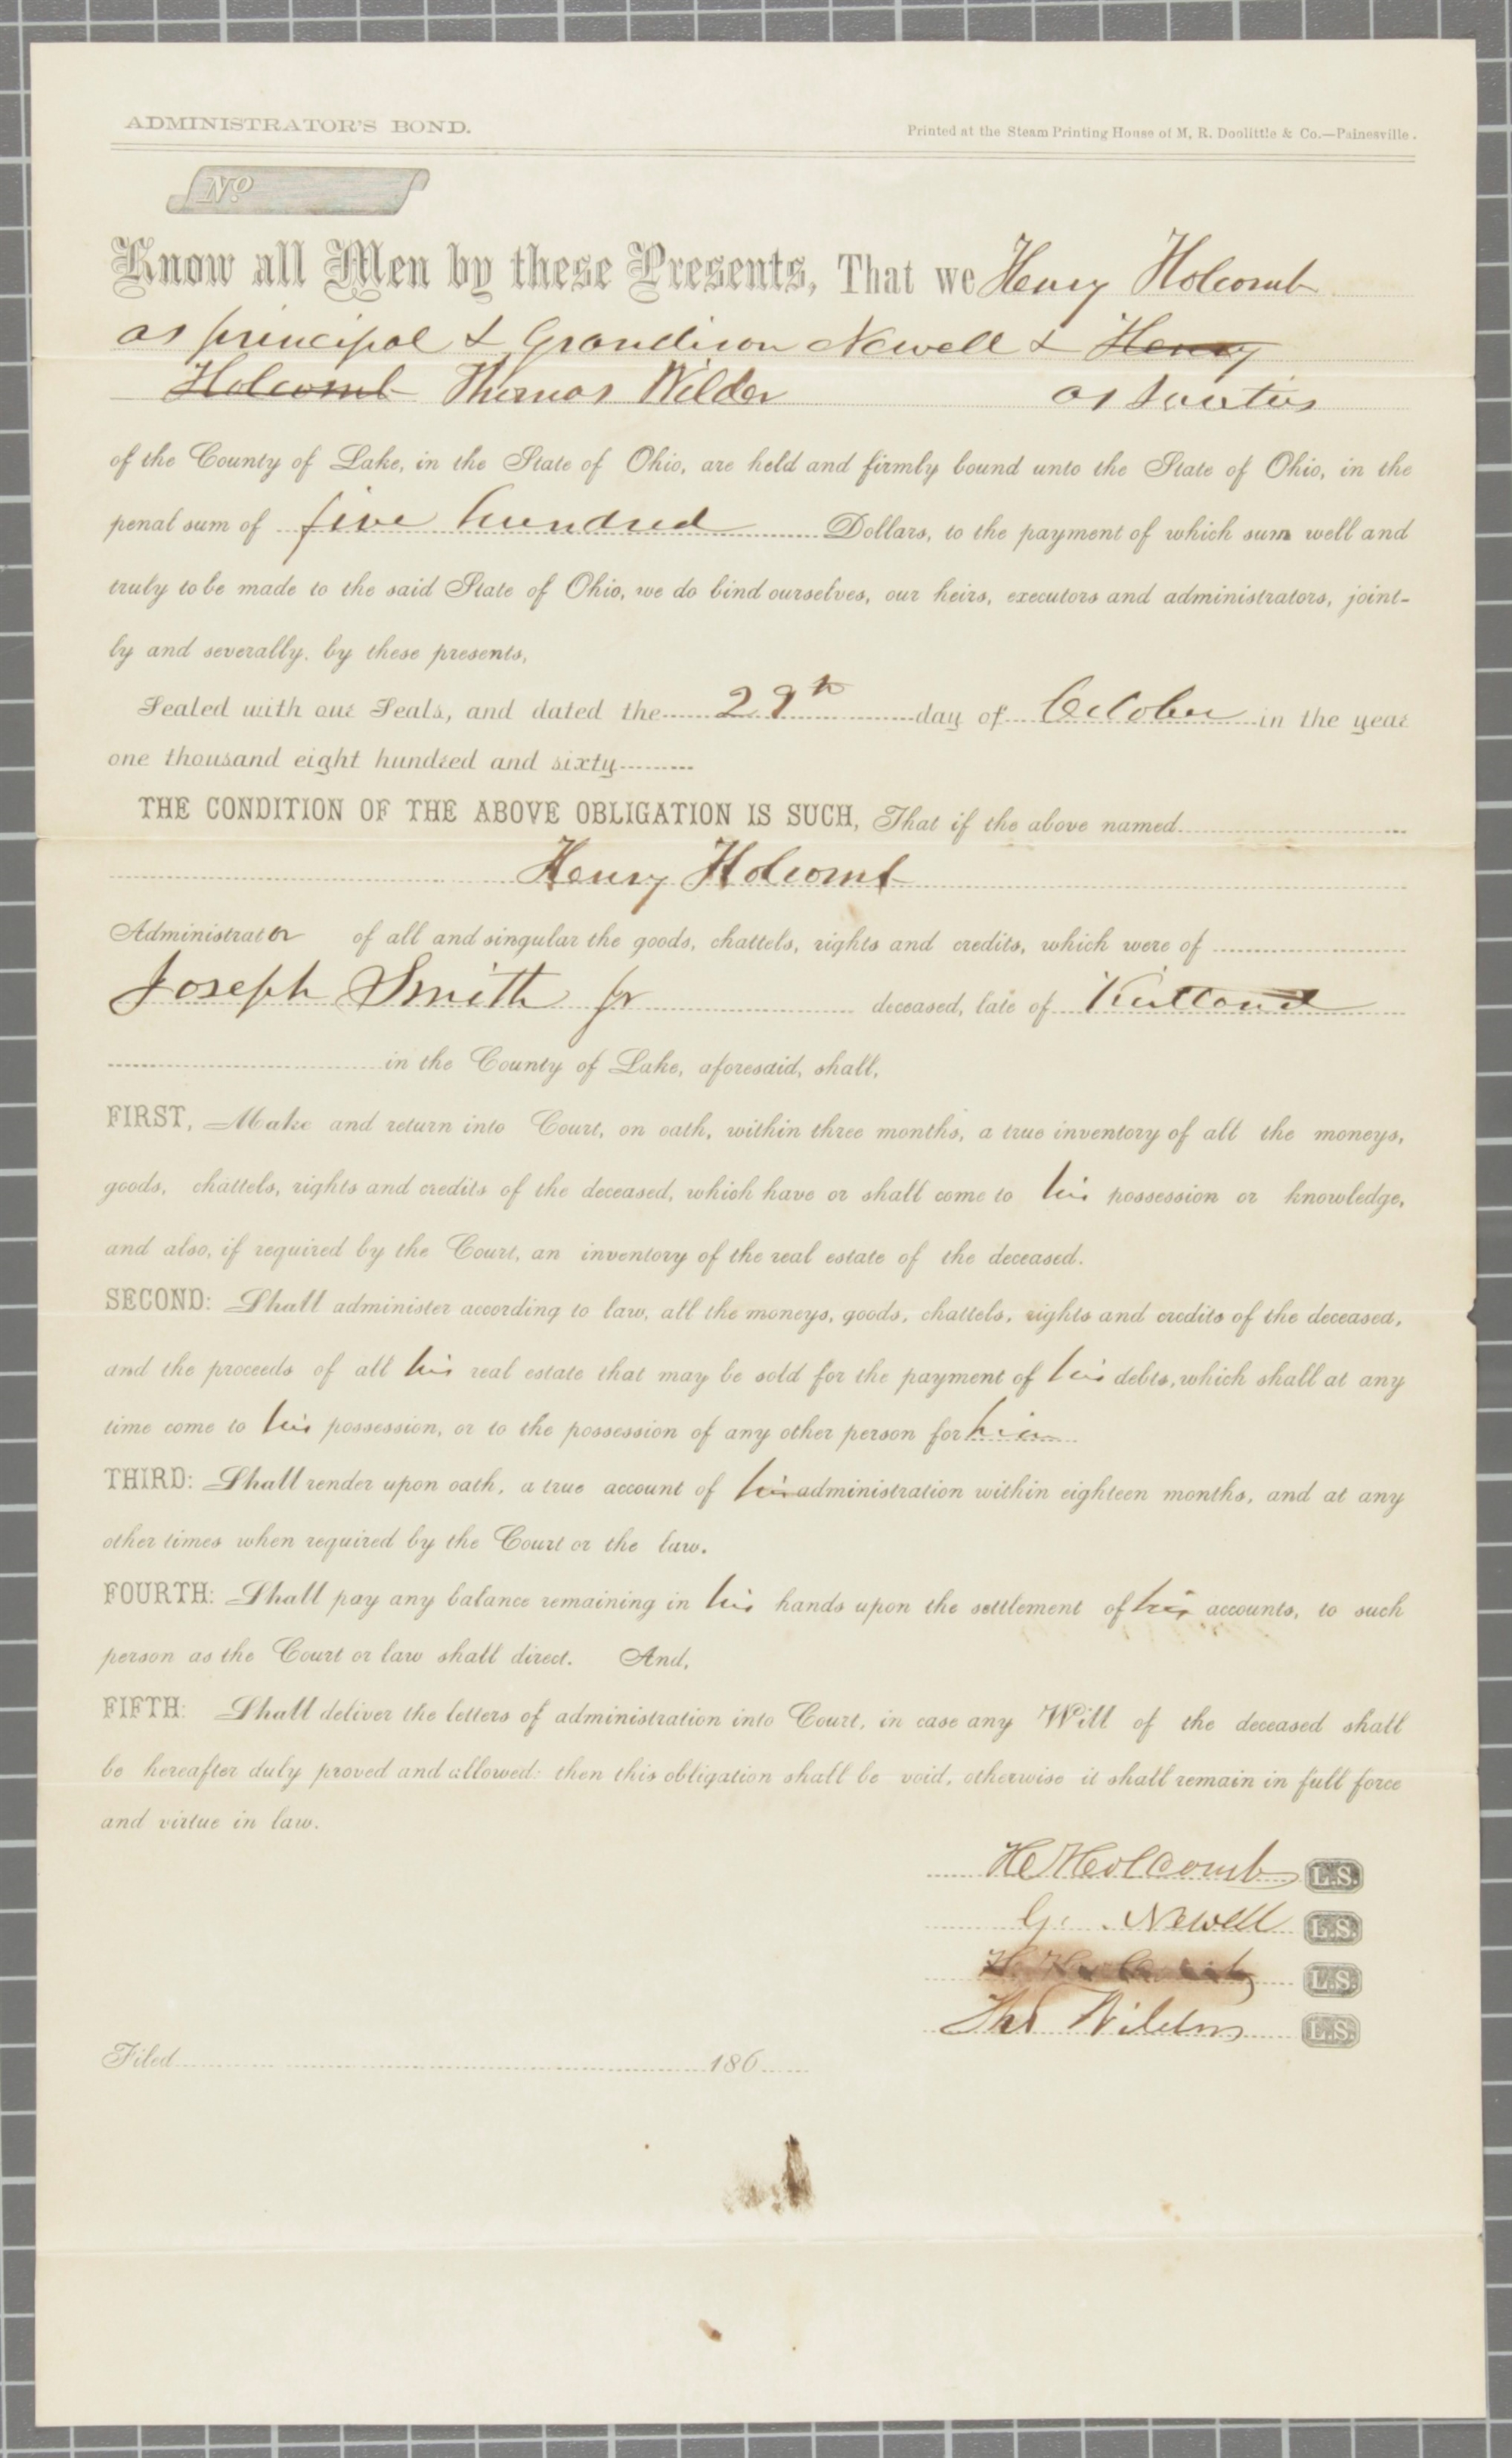 ADMINISTRATOR'S BOND.
Printed at the Steam Printing House of M, R. Doolittle & Co.—Painesville.
No
Know all Men by these Presents, That we Henry Holcomb
as principal & Grandison Newell & Henry
Holcomb Thomas Wilder as Sureties
of the County of Lake, in the State of Ohio, are held and firmly bound unto the State of Ohio, in the
penal sum of five hundred Dollars, to the payment of which sum well and
truly to be made to the said State of Ohio, we do bind ourselves, our heirs, executors and administrators, joint-
ly and severally, by these presents,
Sealed with our Seals, and dated the 29th day of October in the year
one thousand eight hundred and sixty
THE CONDITION OF THE ABOVE OBLIGATION IS SUCH, That if the above named
Henry Holcomb
Administrator of all and singular the goods, chattels, rights and credits, which were of
Joseph Smith Jr deceased, late of Kirtland
in the County of Lake, aforesaid, shall,
FIRST, Make and return into Court, on oath, within three months, a true inventory of all the moneys,
goods, chattels, rights and credits of the deceased, which have or shall come to his possession or knowledge,
and also, if required by the Court, an inventory of the real estate of the deceased.
SECOND: Shall administer according to law, all the moneys, goods, chattels, rights and credits of the deceased,
and the proceeds of all his real estate that may be sold for the payment of his debts, which shall at any
time come to his possession, or to the possession of any other person for him
THIRD: Shall render upon oath, a true account of his administration within eighteen months, and at any
other times when required by the Court or the law.
FOURTH: Shall pay any balance remaining in his hands upon the settlement of his accounts, to such
person as the Court or law shall direct. And,
FIFTH: Shall deliver the letters of administration into Court, in case any Will of the deceased shall
be hereafter duly proved and allowed: then this obligation shall be void, otherwise it shall remain in full force
and virtue in law.
H Holcomb L.S.
G. Newell L.S.
L.S.
Thos Wilder L.S.
Filed 186